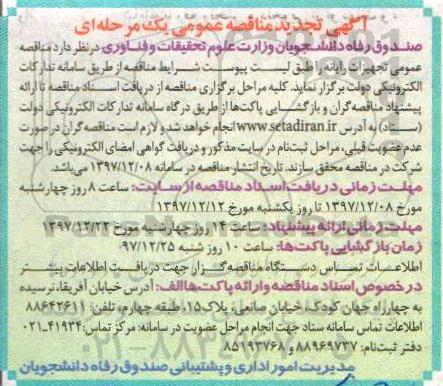 آگهی تجدید مناقصه عمومی یک مرحله‌ای
صندوق رفاه دانشجویان وزارت علوم تحقیقات و فناوری در نظر دارد مناقصه
عمومی تجهیزات رایانه را طبق لیست پیوست شرایط مناقصه از طریق سامانه تدارکات
الکترونیکی دولت برگزار نماید. کلیه مراحل برگزاری مناقصه از دریافت اسناد مناقصه تا ارائه
پیشنهاد مناقصه‌گران و بازگشایی پاکت‌ها از طریق درگاه سامانه تدارکات الکترونیکی دولت
(ستاد) به آدرس www.setadiran.ir انجام خواهد شد و لازم است مناقصه‌گران در صورت
عدم عضویت قبلی، مراحل ثبت‌نام در سایت مذکور و دریافت گواهی امضای الکترونیکی را جهت
شرکت در مناقصه محقق سازند. تاریخ انتشار مناقصه در سامانه ۱۳۹۷/۱۲/۰۸ می‌باشد.
مهلت زمانی دریافت اسناد مناقصه از سایت: ساعت ۸ روز چهارشنبه
مورخ ۱۳۹۷/۱۲/۰۸ تا روز یکشنبه مورخ ۱۳۹۷/۱۲/۱۲
مهلت زمانی ارائه پیشنهاد: ساعت ۱۴ روز چهارشنبه مورخ ۱۳۹۷/۱۲/۲۲
زمان بازگشایی پاکت‌ها: ساعت ۱۰ روز شنبه ۹۷/۱۲/۲۵
اطلاعات تماس دستگاه مناقصه‌گزار جهت دریافت اطلاعات بیشتر
در خصوص اسناد مناقصه و ارائه پاکت‌ها الف: آدرس خیابان آفریقا، نرسیده
به چهارراه جهان کودک، خیابان صانعی، پلاک ۱۵، طبقه چهارم، تلفن: ۸۸۶۴۲۶۱۱
اطلاعات تماس سامانه ستاد جهت انجام مراحل عضویت در سامانه: مرکز تماس: ۴۱۹۳۴-۰۲۱
دفتر ثبت‌نام: ۸۸۹۶۹۷۳۷ و ۸۵۱۹۳۷۶۸
مدیریت امور اداری و پشتیبانی صندوق رفاه دانشجویان